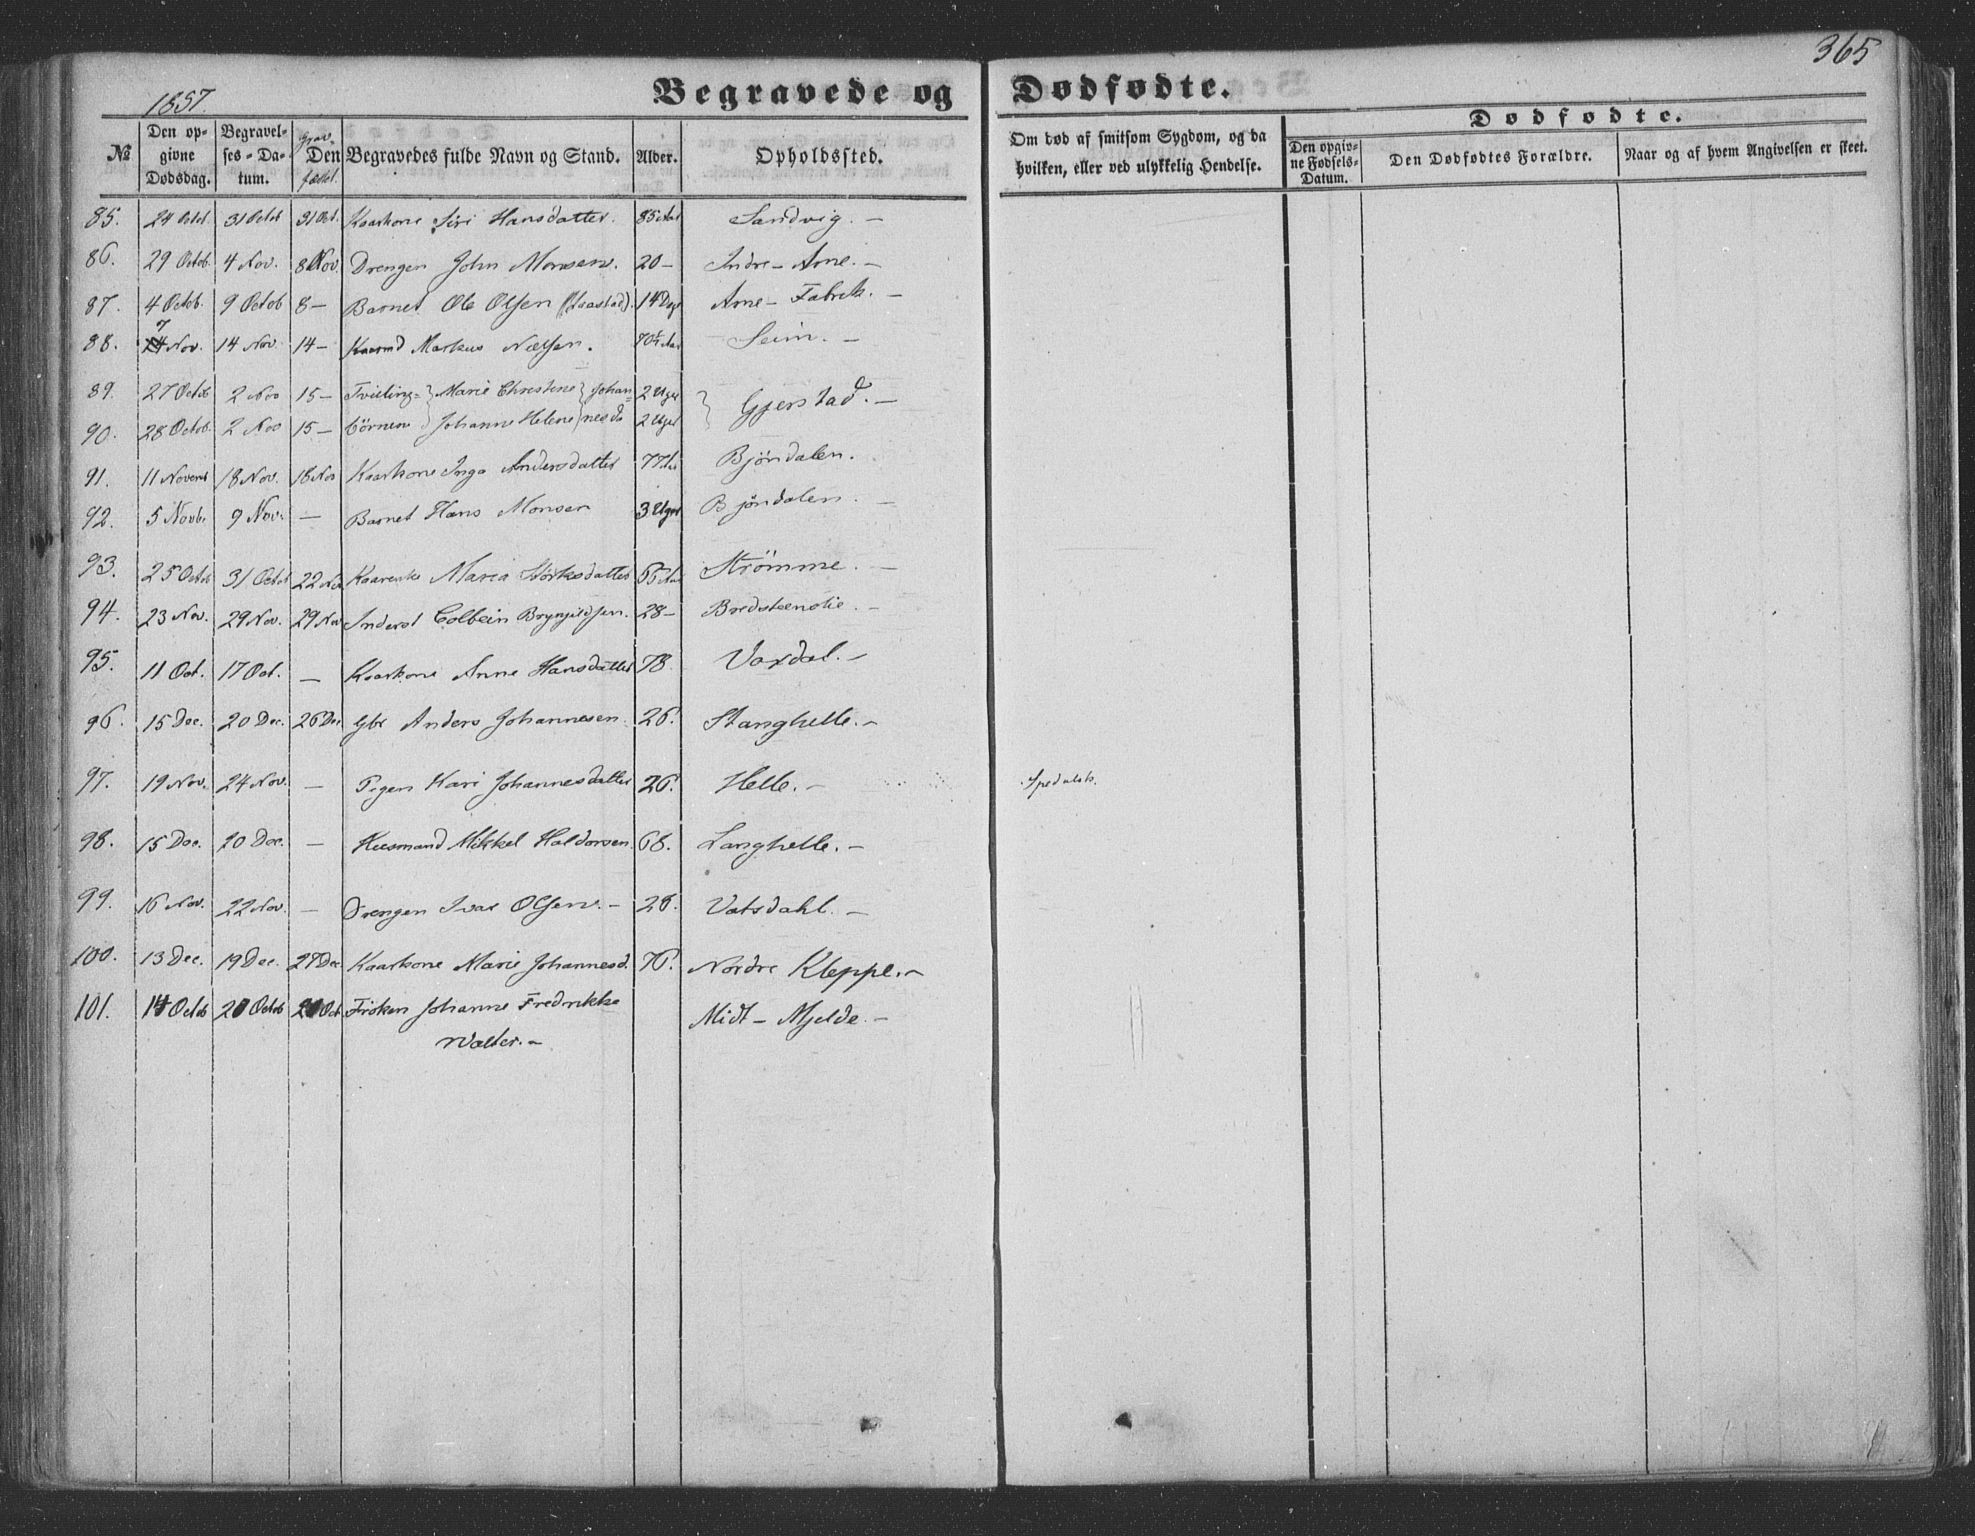 365
1857.
Begravede og Dødfødte.
Dødfødte.
No Den opgivne Dødsdag. Begravelses-Datum. Den Begravedes fulde Navn og Stand. Alder. Opholdssted. Om død af smitsom Sygdom, og da hvilken, eller ved ulykkelig Hendelse. Den opgivne Fødsels-Datum. Den Dødfødtes Forældre. Naar og af hvem Angivelsen er skeet.
85. 24 Octob 31 Octob 31 Oct. Kaarkone Siri Hansdatter. 85 Aar Sandvig. -
86. 29 Octob. 4 Nov. 8 Nov Drengen John Monsen. 20 - Indre - Arne. -
87. 4 Octob. 9 Octob 8 - Barnet Ole Olsen 14 Dage Arne - Fabrik. -
88. 7 Nov. 14 Nov. 14 - Kaarmd Markus Nielsen. 70 Aar Seim. -
89. 27 Octob 2 Nov 15 - Tvilling= } Marie Christine } Johan= 2 Uger } Gjerstad. -
90. 28 Octob. 2 Nov 15 - börnene } Johanne Helene } nesd. 2 Uger
91. 11 Novemb 18 Nov. 18 Nov Kaarkone Inga Andersdatter 77 Aar Bjöndalen.
92. 5 Novb. 9 Nov. - Barnet Hans Monsen 3 Uger Bjöndalen. -
93. 25 Octob 31 Octob 22 Nov Kaarenke Maria 66 Aar Strömme. -
94. 23 Nov. 29 Nov. 29 Nov Inderst Colbein Brynjildsen. 28 - -
95. 11 Oct. 17 Oct. - Kaarkone Anne Hansdatter 78. Vaxdal. -
96. 15 Dec. 20 Dec. 26 Dec Gbr Anders Johannesen. 26. Stanghelle. -
97. 19 Nov. 24 Nov. - Pigen Kari Johannesdatter 26. Helle. - Spedalsk.
98. 15 Dec. 20 Dec. - Huusmand Mikkel Haldorsen. 68. Langhelle. -
99. 16 Nov. 22 Nov. - Drengen Ivar Olsen. - 28. Vatsdahl. -
100. 13 Dec. 19 Dec. 27 Dec. Kaarkone Marie Johannesd. 76. Nordre Kleppe. -
101. 14 Octob 20 Octob 20 Oct Fröken Johanne Fredrikke Midt - Mjelde. -
Wolter. -